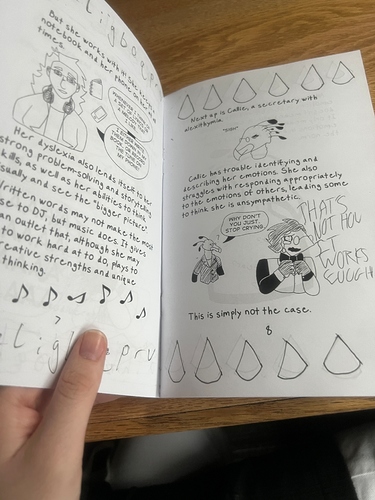 ligboqp
But she works with it! She keeps a
notebook and her phone
times.
Her dyslexia also lends itself to her
strong problem-solving and storytelling
skills, as well as her ability to think
visually and see the "bigger picture"
Written words may not make the most
sense to DJ, but music does. It gives
an outlet that, although she may
to work hard at to do, plays to
creative strengths and unique
thinking.
Next up is Callie, a secretary with
alexithymia.
*SIGH*
Callie has trouble identifying and
describing her emotions. She also
struggles with responding appropriately
to the emotions of others, leading some
to think she is unsympathetic.
WHY DON'T
YOU JUST
STOP CRYING.
THAT'S
NOT HOW
IT
WORKS
EUUGH
This is simply not the case.
8